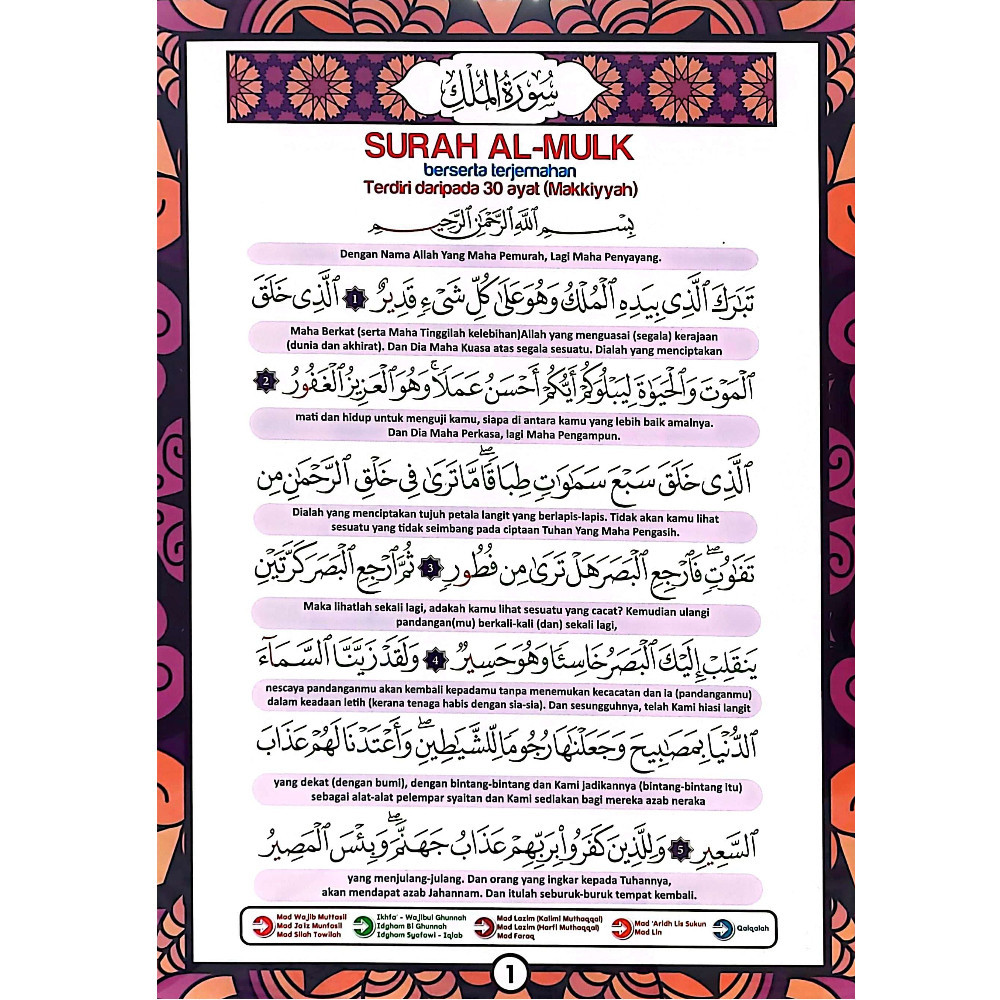 سُورَةُ الْمُلْكِ
SURAH AL-MULK
berserta terjemahan
Terdiri daripada 30 ayat (Makkiyyah)
بِسْمِ اللَّهِ الرَّحْمَٰنِ الرَّحِيمِ
Dengan Nama Allah Yang Maha Pemurah, Lagi Maha Penyayang.
تَبَارَكَ الَّذِي بِيَدِهِ الْمُلْكُ وَهُوَ عَلَىٰ كُلِّ شَيْءٍ قَدِيرٌ 1 الَّذِي خَلَقَ
Maha Berkat (serta Maha Tinggilah kelebihan)Allah yang menguasai (segala) kerajaan
(dunia dan akhirat). Dan Dia Maha Kuasa atas segala sesuatu. Dialah yang menciptakan
الْمَوْتَ وَالْحَيَاةَ لِيَبْلُوَكُمْ أَيُّكُمْ أَحْسَنُ عَمَلًا ۚ وَهُوَ الْعَزِيزُ الْغَفُورُ 2
mati dan hidup untuk menguji kamu, siapa di antara kamu yang lebih baik amalnya.
Dan Dia Maha Perkasa, lagi Maha Pengampun.
الَّذِي خَلَقَ سَبْعَ سَمَاوَاتٍ طِبَاقًا ۖ مَّا تَرَىٰ فِي خَلْقِ الرَّحْمَٰنِ مِن
Dialah yang menciptakan tujuh petala langit yang berlapis-lapis. Tidak akan kamu lihat
sesuatu yang tidak seimbang pada ciptaan Tuhan Yang Maha Pengasih.
تَفَاوُتٍ ۖ فَارْجِعِ الْبَصَرَ هَلْ تَرَىٰ مِن فُطُورٍ 3 ثُمَّ ارْجِعِ الْبَصَرَ كَرَّتَيْنِ
Maka lihatlah sekali lagi, adakah kamu lihat sesuatu yang cacat? Kemudian ulangi
pandangan(mu) berkali-kali (dan) sekali lagi,
يَنقَلِبْ إِلَيْكَ الْبَصَرُ خَاسِئًا وَهُوَ حَسِيرٌ 4 وَلَقَدْ زَيَّنَّا السَّمَاءَ
nescaya pandanganmu akan kembali kepadamu tanpa menemukan kecacatan dan ia (pandanganmu)
dalam keadaan letih (kerana tenaga habis dengan sia-sia). Dan sesungguhnya, telah Kami hiasi langit
الدُّنْيَا بِمَصَابِيحَ وَجَعَلْنَاهَا رُجُومًا لِّلشَّيَاطِينِ ۖ وَأَعْتَدْنَا لَهُمْ عَذَابَ
yang dekat (dengan bumi), dengan bintang-bintang dan Kami jadikannya (bintang-bintang itu)
sebagai alat-alat pelempar syaitan dan Kami sediakan bagi mereka azab neraka
السَّعِيرِ 5 وَلِلَّذِينَ كَفَرُوا بِرَبِّهِمْ عَذَابُ جَهَنَّمَ ۖ وَبِئْسَ الْمَصِيرُ
yang menjulang-julang. Dan orang yang ingkar kepada Tuhannya,
akan mendapat azab Jahannam. Dan itulah seburuk-buruk tempat kembali.
Mad Wajib Muttasil
Mad Jaiz Munfasil
Mad Silah Towilah
Ikhfa' - Wajibul Ghunnah
Idgham Bi Ghunnah
Idgham Syafawi - Iqlab
Mad Lazim (Kalimi Muthaqqal)
Mad Lazim (Harfi Muthaqqal)
Mad Faraq
Mad 'Aridh Lis Sukun
Mad Lin
Qalqalah
1